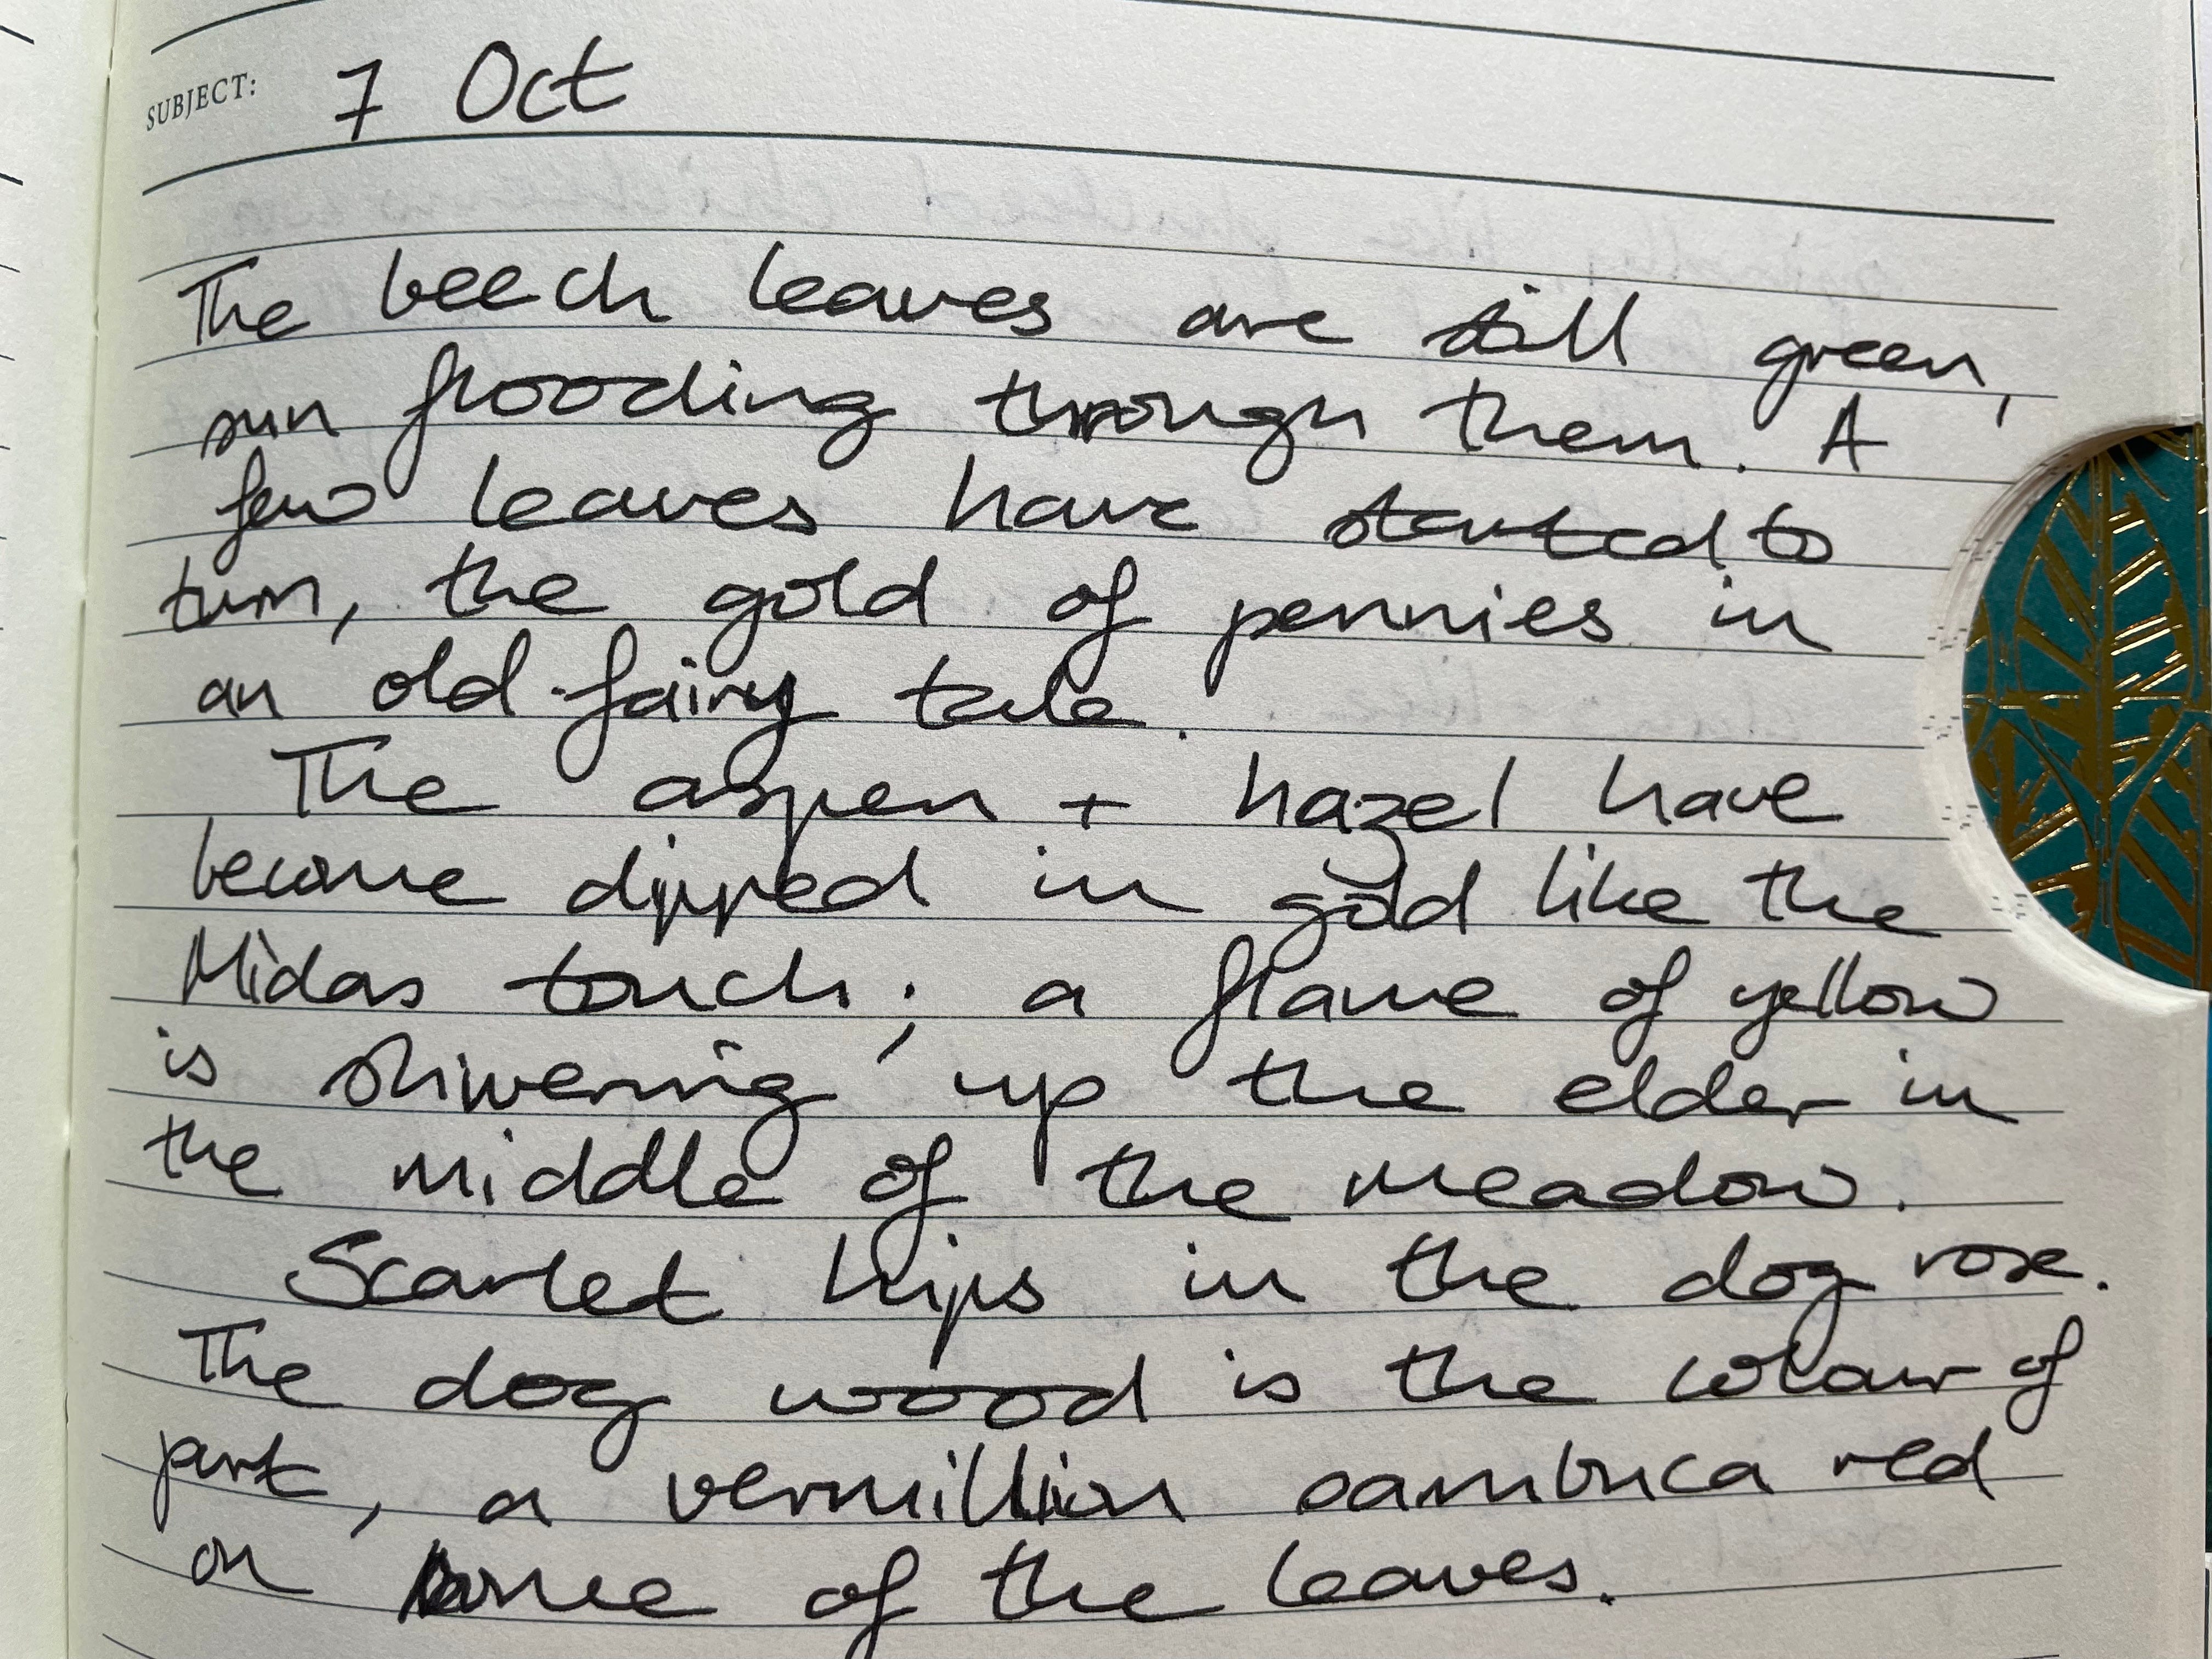 SUBJECT: 7 Oct
The beech leaves are still green,
sun flooding through them. A
few leaves have started to
turn, the gold of pennies in
an old fairy tale.
The aspen + hazel have
become dipped in gold like the
Midas touch; a flame of yellow
is shivering up the elder in
the middle of the meadow.
Scarlet hips in the dog rose.
The dog wood is the colour of
port, a vermillion sambuca red
on some of the leaves.